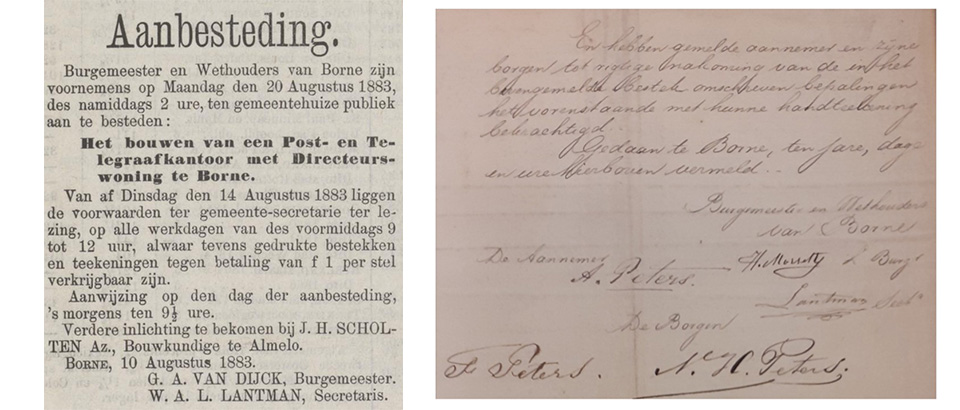 Aanbesteding.
Burgemeester en Wethouders van Borne zijn
voornemens op Maandag den 20 Augustus 1883,
des namiddags 2 ure, ten gemeentehuize publiek
aan te besteden:
Het bouwen van een Post- en Te-
legraafkantoor met Directeurs-
woning te Borne.
Van af Dinsdag den 14 Augustus 1883 liggen
de voorwaarden ter gemeente-secretarie ter le-
zing, op alle werkdagen van des voormiddags 9
tot 12 uur, alwaar tevens gedrukte bestekken
en teekeningen tegen betaling van f 1 per stel
verkrijgbaar zijn.
Aanwijzing op den dag der aanbesteding,
's morgens ten 9½ ure.
Verdere inlichting te bekomen bij J. H. SCHOL-
TEN Az., Bouwkundige te Almelo.
BORNE, 10 Augustus 1883.
G. A. VAN DIJCK, Burgemeester.
W. A. L. LANTMAN, Secretaris.
En hebben gemelde aannemer en zijne
borgen tot rigtige nakoming van de in het
Bestek omschreven bepalingen
het vorenstaande met hunne handteekening
bekrachtigd.
Gedaan te Borne, ten jare, dag
en ure hierboven vermeld.
Burgemeester en Wethouders
van Borne
De Aannemer
A. Peters.
Lantman
De Borgen
F Peters.
H. Peters.